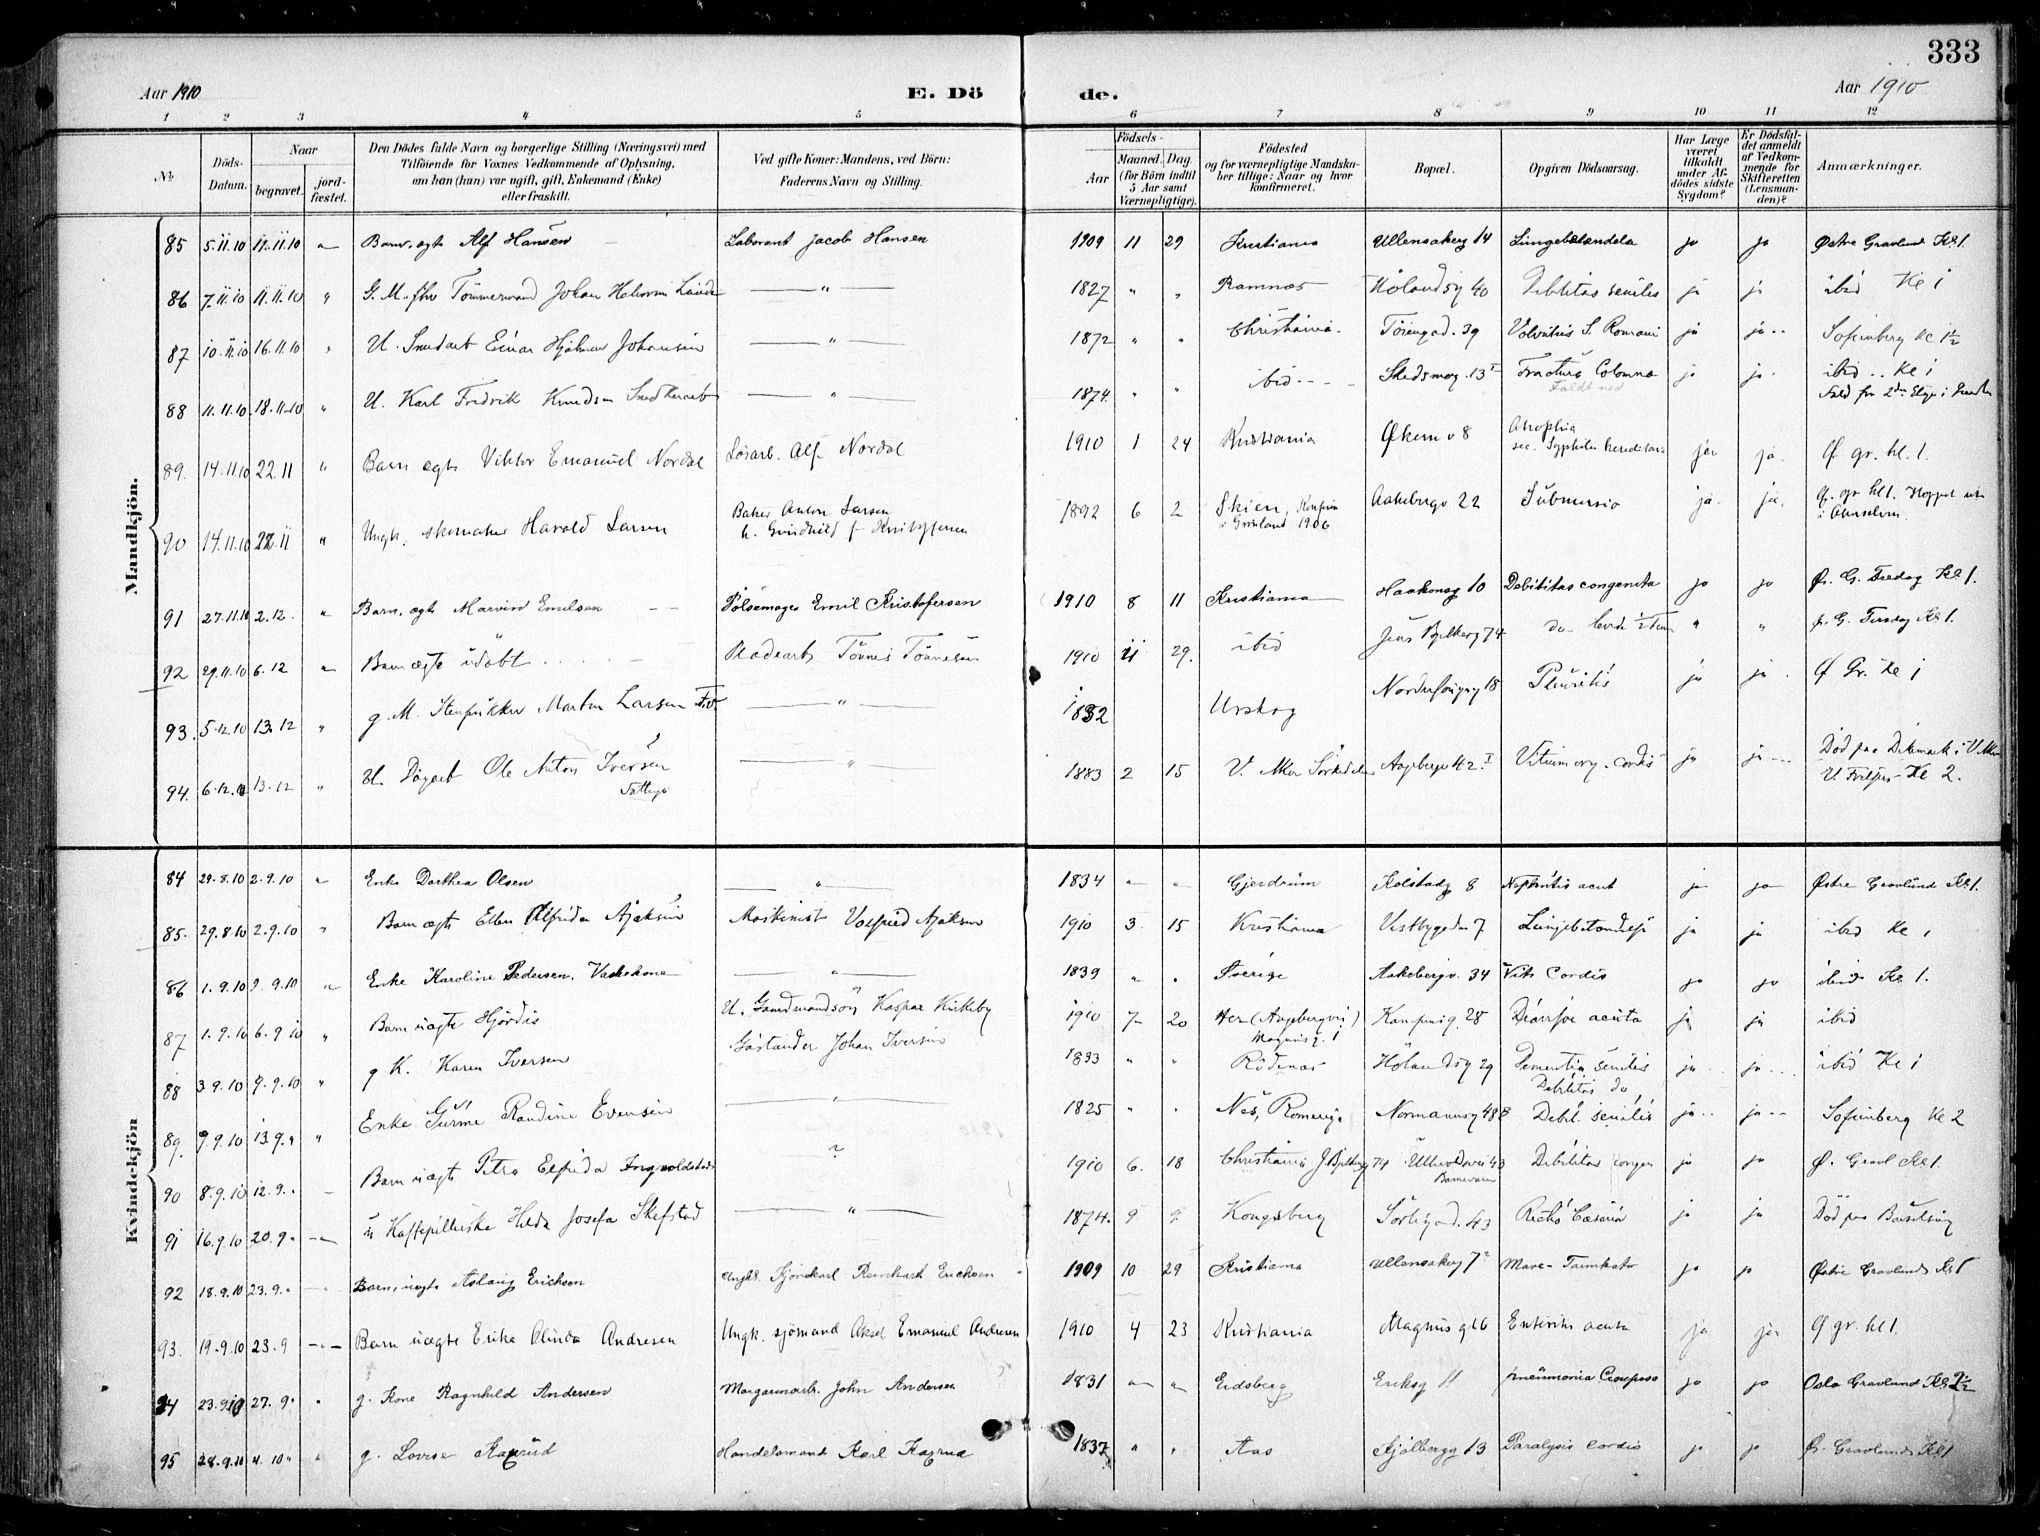 333
Aar 1910 E. Dö de. Aar 1910
1 2 3 4 5 6 7 8 9 10 11 12
№
Döds-Datum.
Naar
begravet.
jord-fæstet.
Den Dödes fulde Navn og borgerlige Stilling (Næringsvei) med
Tilföiende for Voxnes Vedkommende af Oplysning,
om han (hun) var ugift, gift, Enkemand (Enke)
eller fraskilt.
Ved gifte Koner: Mandens, ved Börn:
Faderens Navn og Stilling.
Födsels-
Aar
Maaned. Dag.
(for Börn indtil
5 Aar samt
Værnepligtige).
Födested
og for værnepligtige Mandska-
ber tillige: Naar og hvor
konfirmeret.
Bopæl.
Opgiven Dödsaarsag.
Har Læge
været
tilkaldt
under Af-
dödes sidste
Sygdom?
Er Dödsfal-
det anmeldt
af Vedkom-
mende for
Skifteretten
(Lensman-
den)?
Anmærkninger.
Mandkjön.
85 5.11.10 11.11.10 " Barn, ægte Alf Hansen Laborant Jacob Hansen 1909 11 29 Kristiania Ullensakerg 14 Lungebetændelse ja ja Østre Gravlund Kl 1.
86 7.11.10 11.11.10 " G. M. fhv Tömmermand Johan " 1827 " " Ramnæs Hölandsg 40 Debilitas senilis ja ja ibid Kl 1
87 10.11.10 16.11.10 " U. Einar Hjalmar Johansen " 1872 " " Christiania Töiengad. 39 Volvulus S. Romani ja ja Sofienberg Kl 1½
88 11.11.10 18.11.10 " U. Karl Fredrik Knudsen " 1874 " " ibid Skedsmog. 13 I Fractura Columna ja ja ibid Kl 1
Faldt ned
Fald fra 2den Etage i
89. 14.11.10 22.11 " Barn ægte Viktor Emanuel Nordal Lösarb. Alf Nordal 1910 1 24 Kristiania Økernv 8 Atrophia ja ja. Ø gr. kl. 1.
sec. Syphilis hereditaria
90 14.11.10 22.11 " Ungk. skomaker Harald Larsen Baker Anton Larsen 1892 6 2 Skien, Konfirm Aakebergv 22 Submersio ja. ja. Ø. gr kl 1. Hoppet ut
h. Gundhild f. i Grönland 1906 i Akerselven.
91 27.11.10 2.12. " Barn, ægte Marvin Emilsen Pölsemager Emil Kristofersen 1910 8 11 Kristiania Haakonsg 10 Debilitas congenita ja ja Ø. G. Fredag Kl 1.
92 29.11.10 6.12 " Barn ægte udøbt Tönnes Tönnesen 1910 11 29. ibid Jens Bjelkesg 74 do levede ½ Time " " Ø. G. Tirsdag Kl 1.
93. 5.12.10 13.12 " g. M. Stenhukker Martin Larsen " 1832 Urskog 18 Pleuritis ja ja. Ø Gr. Kl 1
94. 6.12.10 13.12 " U. Ole Anton Iversen " 1883 2 15 V. Aker Sörkedalen Aagebergv 42 I Vitium org. cordis ja ja Död paa Dikemark i V Aker
Fattigv V. Kl 2.
Kvindekjön
84 29.8.10 2.9.10 " Enke Dorthea Olsen " 1834 " " Gjerdrum Kolstadg 8 Nephritis acut ja ja Østre Gravlund Kl 1.
85. 29.8.10 2.9.10 " Barn ægte Ellen Alfrida Ajaksen Maskinist Valfrid Ajaksen 1910 3. 15 Kristiania Vestbygden 7 Lungebetændelse ja ja ibid Kl 1
86 1.9.10 9.10 " Enke Karoline Pedersen. Vaskekone " 1839 " " Sverige Aakebergv. 34 Vits Cordis ja ja ibid Kl 1.
87 1.9.10 6.9.10 " Barn uægte Hjördis U. Kaspar Kirkeby 1910 7 20 Her (Aagebergvei) Kampeng. 28 Diarrhoe acuta ja ja ibid
Magnusg. 1
88 3.9.10 9.9.10 " g K. Karen Iversen Johan Iversen 1833 " " Rödenæs Hölandsg 29 Dementia senilis ja ja ibid Kl 1
Debilitas do
89. 9.9.10 13.9. " " Enke Randine Evensen " 1825 " " Næs, Romerige Normannsg 48B Debil. senilis ja ja Sofienberg Kl 2
90 8.9.10 12.9. " Barn uægte Petra Elfrida Ingvoldstad ? 1910 6. 18 Christiania J Bjelkesg 74 43 Debilitas congen ja ja Ø. Gravl Kl 1.
91 16.9.10 20.9 " u Kaffepillerske Hilda Josefa Skefstad " 1874. 9 9 Kongsberg Sörligad. 43 ja ja Död paa
92 18.9.10 23.9. " Barn, uægte Aslaug Ericksen Ungk. Reinhart Ericksen 1909 10 29 Kristiania Ullensakerg 7 Mave-Tarmkatar ja ja Østre Gravlund Kl 1
93. 19.9.10 23.9 " Barn uægte Erika Olinda Andresen Ungk. sjömand Aksel Emanuel Andresen 1910 4 23 Kristiania Magnus g 16 Enteritis acuta ja ja Ø gr. kl 1.
94 23.9.10 27.9. " g. Kone Ragnhild Andersen Margarinarb. John Andersen 1831 " " Eidsberg Eriksg 11 Pneumonia Crouposa ja ja Oslo Gravlund Kl 2½
95 28.9.10 4.10 " g. Lovise Kaxrud Handelsmand Karl Kaxrud 1837 " " Aas Kjölbergg 13 Paralysis cordis ja ja Ø. Gravlund Kl 1